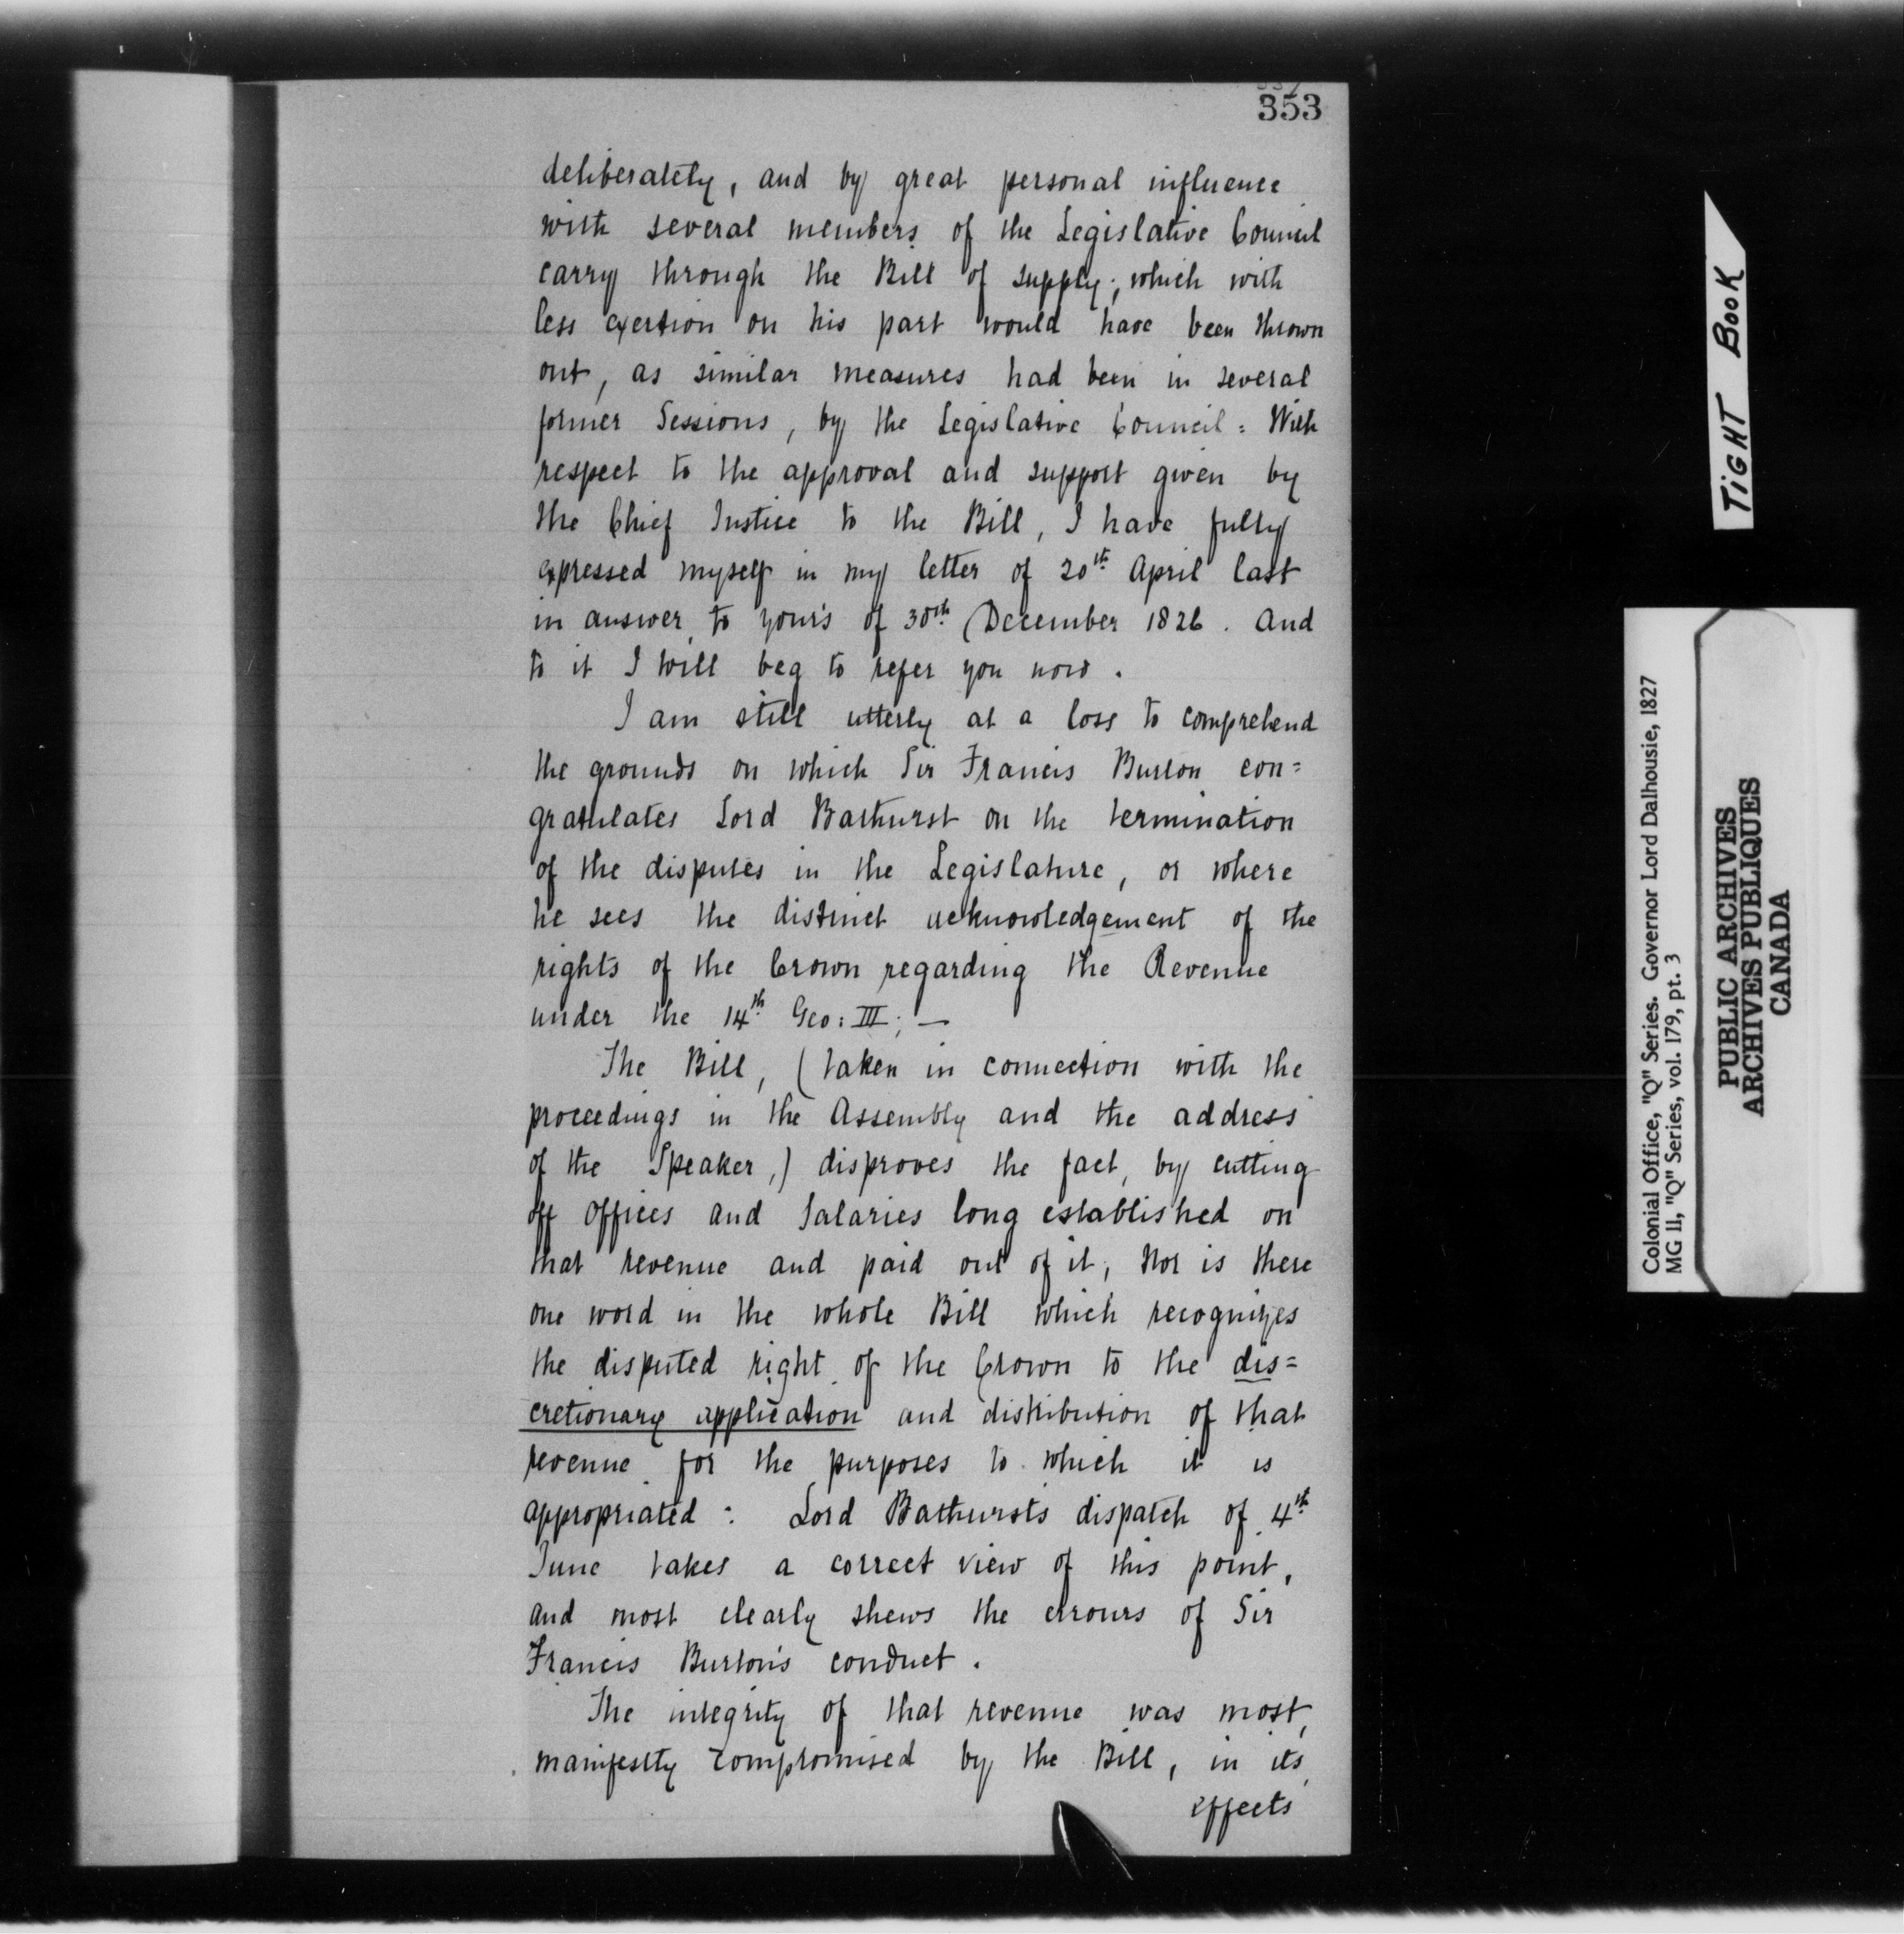 353
deliberately, and by great personal influence
with several members of the Legislative Council
carry through the Bill of supply; which with
less exertion on his part would have been thrown
out, as similar measures had been in several
former Sessions, by the Legislative Council: With
respect to the approval and support given by
the Chief Justice to the Bill, I have fully
expressed myself in my letter of 20th April last
in answer to your's of 30th December 1826. And
to it I will beg to refer you now.
I am still utterly at a loss to comprehend
the grounds on which Sir Francis Burton con=
gratulates Lord Bathurst on the termination
of the disputes in the Legislature, or where
he sees the distinct acknowledgement of the
rights of the Crown regarding the Revenue
under the 14th Geo: III; —
The Bill, (taken in connection with the
proceedings in the Assembly and the address
of the Speaker,) disproves the fact, by cutting
off offices and Salaries long established on
that revenue and paid out of it; Nor is there
one word in the whole Bill which recognizes
the disputed right of the Crown to the dis=
cretionary application and distribution of that
revenue for the purposes to which it is
appropriated: Lord Bathurst's dispatch of 4th
June takes a correct view of this point,
and most clearly shews the errours of Sir
Francis Burton's conduct.
The integrity of that revenue was most
manifestly compromised by the Bill, in its
effects
TIGHT BOOK
Colonial Office, "Q" Series. Governor Lord Dalhousie, 1827
MG 11, "Q" Series, vol. 179, pt. 3
PUBLIC ARCHIVES
ARCHIVES PUBLIQUES
CANADA